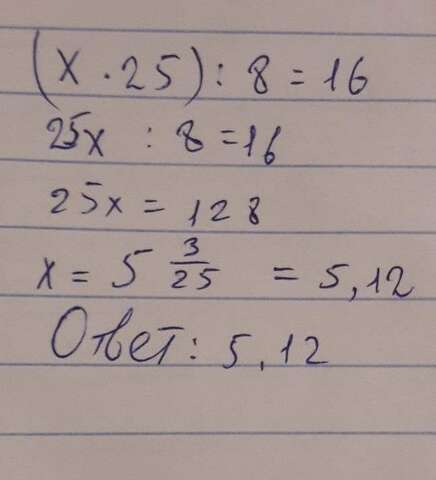 (x · 25) : 8 = 16
25x : 8 = 16
25x = 128
x = 5 3/25 = 5,12
Ответ: 5,12